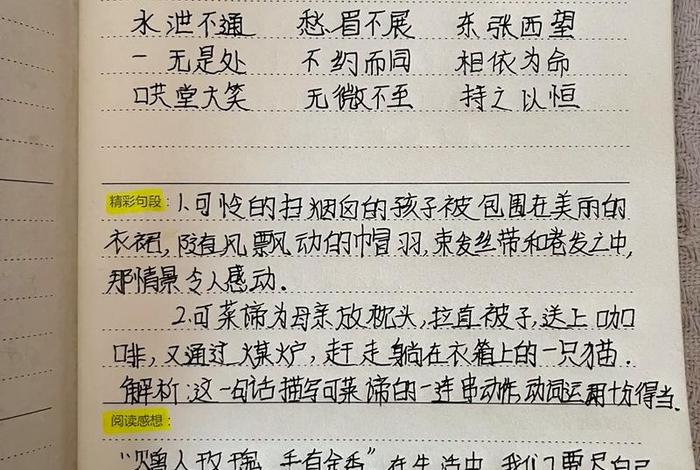 水泄不通 愁眉不展 东张西望
一无是处 不约而同 相依为命
哄堂大笑 无微不至 持之以恒
精彩句段：1.可怜的扫烟囱的孩子被包围在美丽的
衣裙，随着风飘动的帽羽，束发丝带和卷发之中，
那情景令人感动．
2.可莱蒂为母亲放枕头，拉直被子，送上咖
啡，又通过煤炉，赶走躺在衣箱上的一只猫．
解析：这一句话描写可莱蒂的一连串动作，动词运用十分得当．
阅读感想：
人玫瑰，手有余香”在生活中，我们要尽自己